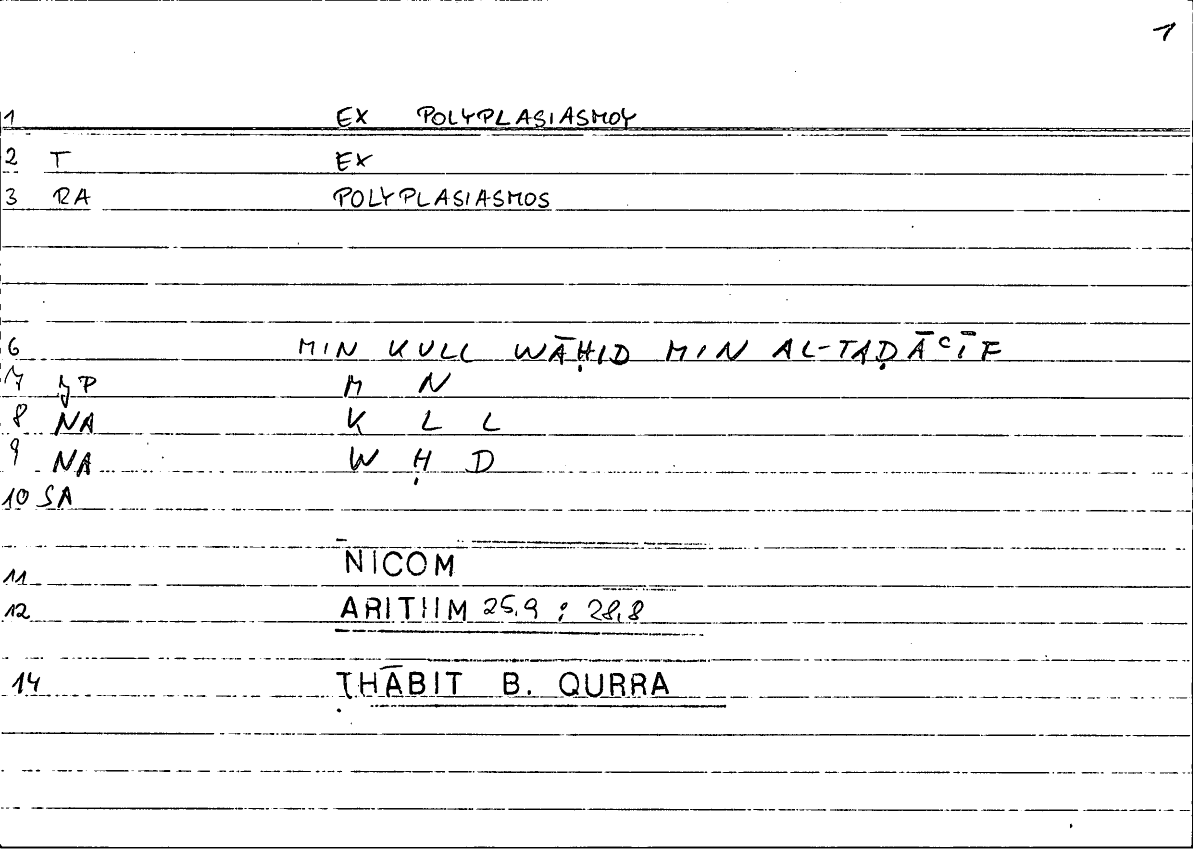 1
1 EX POLYPLASIASMOY
2 T EX
3 RA POLYPLASIASMOS
6 MIN KULL WĀḤID MIN AL-TAḌĀʿĪF
7 JP M N
8 NA K L L
9 NA W Ḥ D
10 SA
11 NICOM
12 ARITHM 25,9 ; 28,8
14 ṮHĀBIT B. QURRA